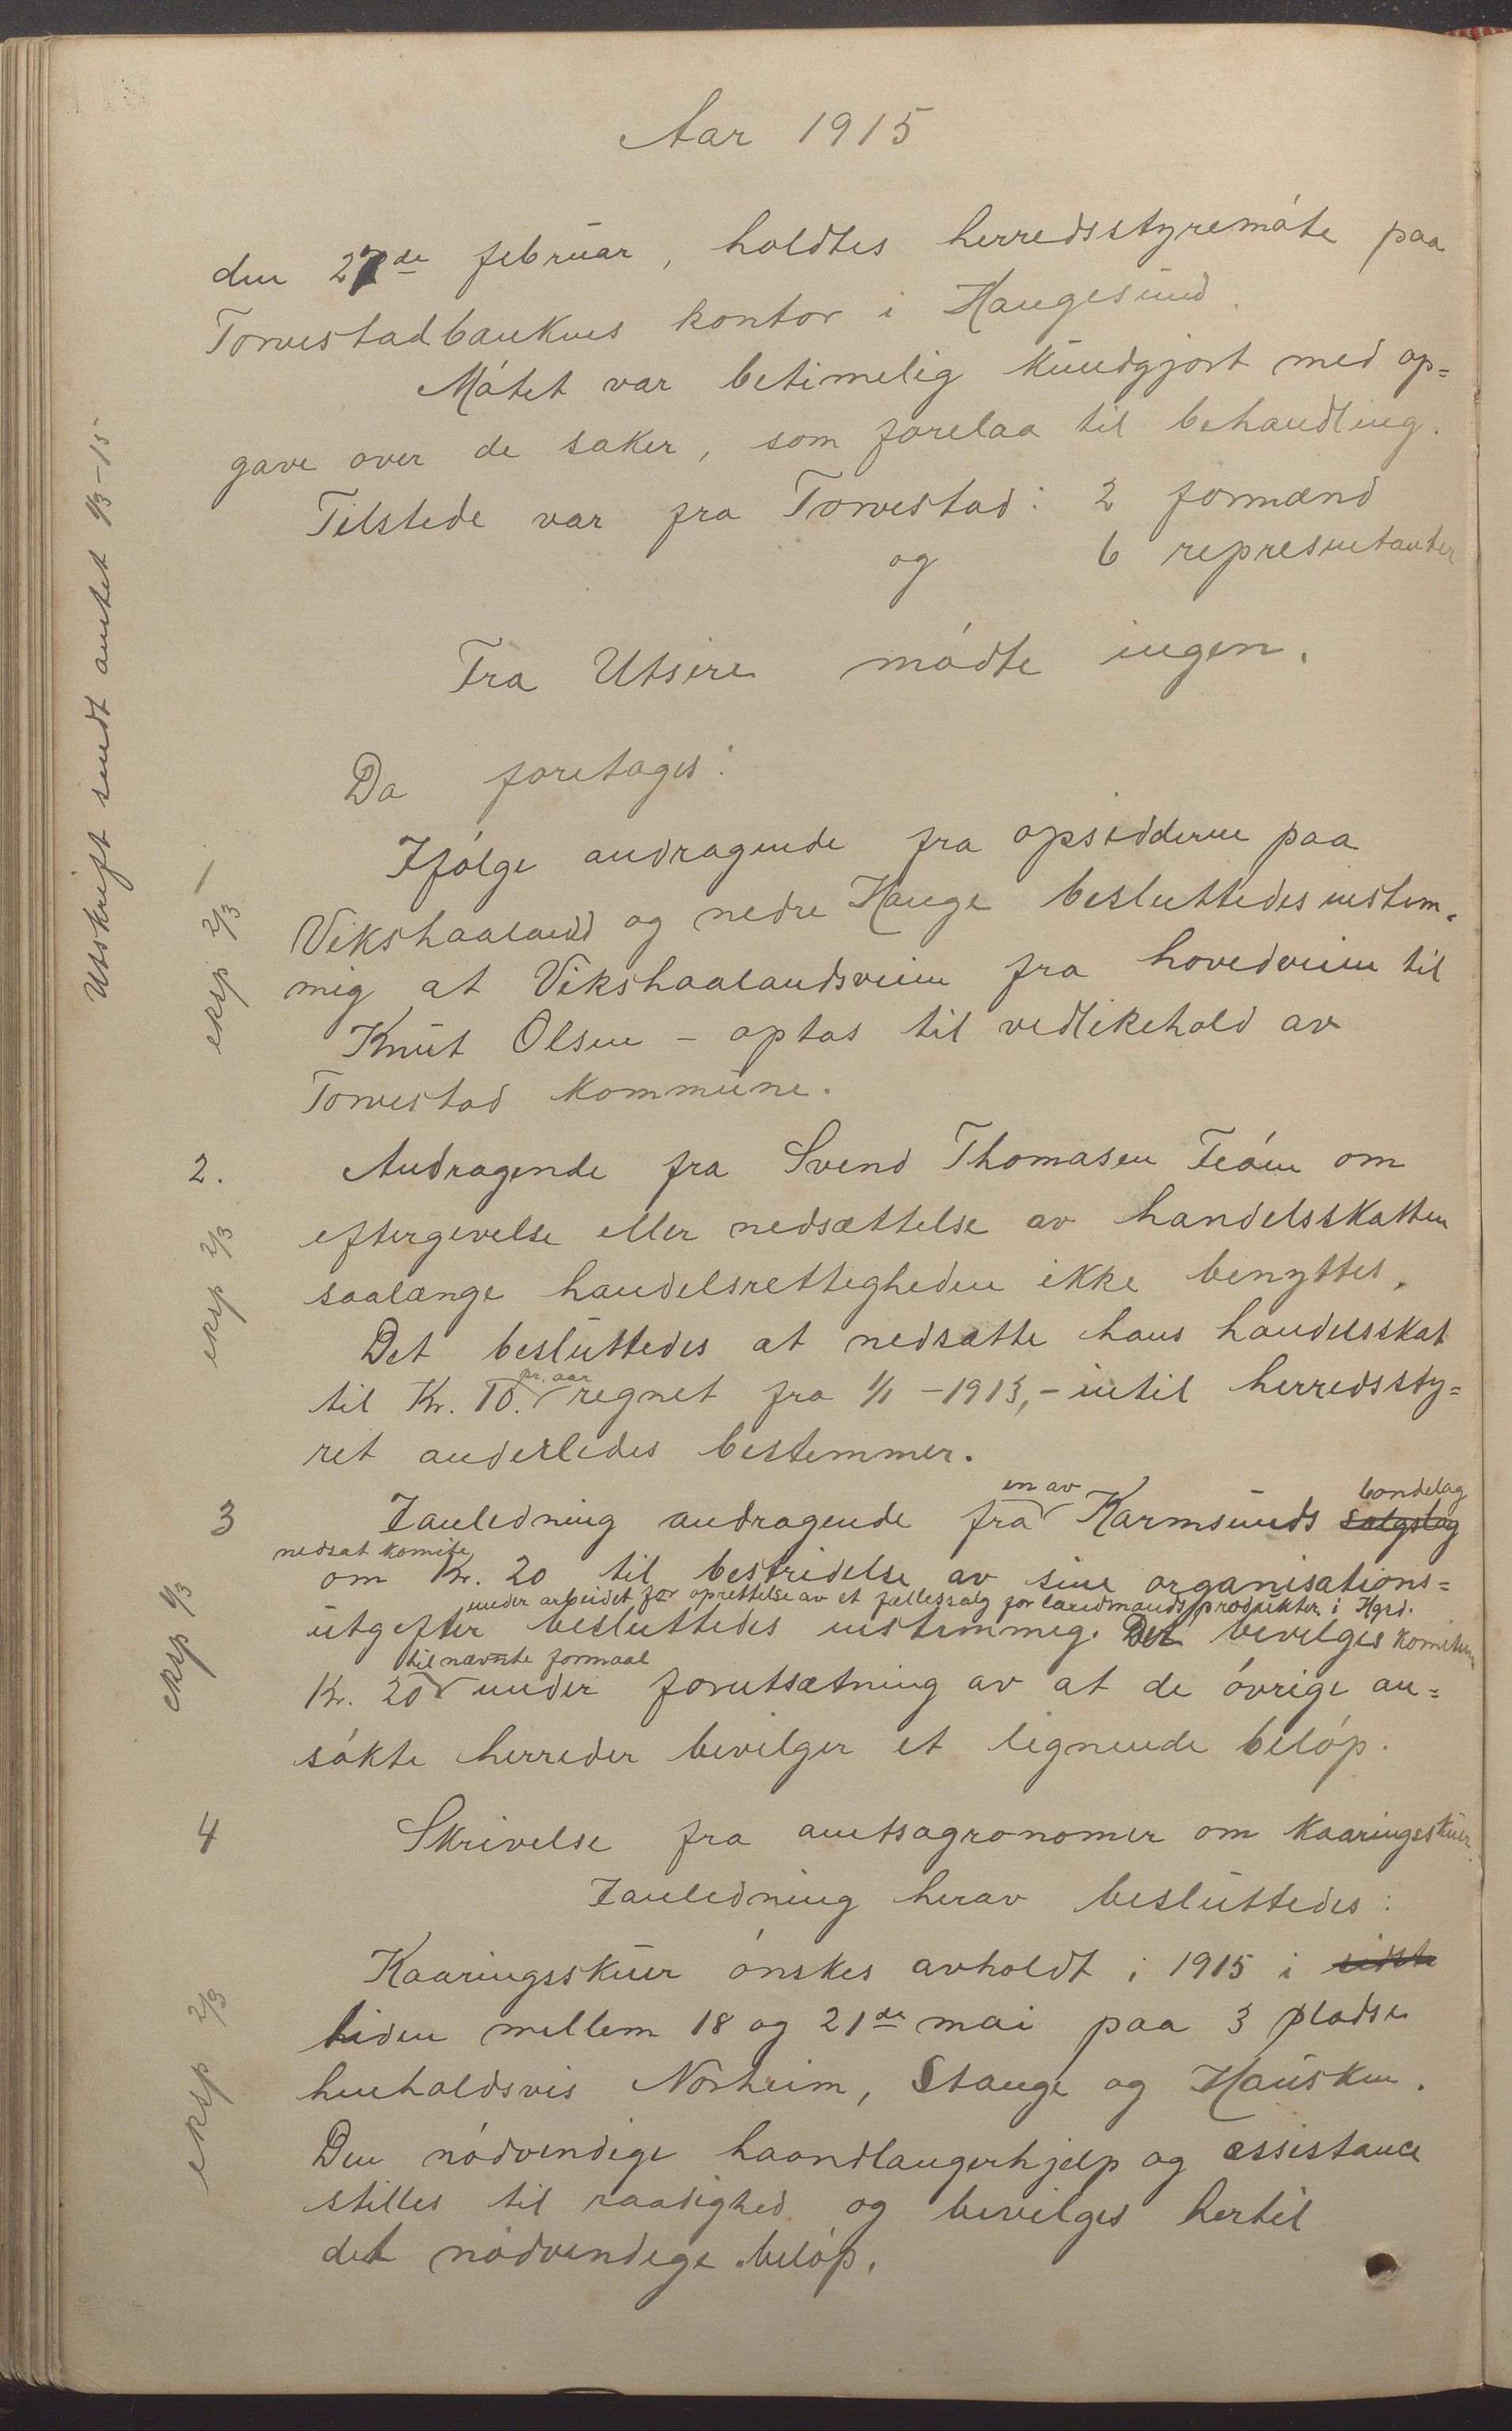 Aar 1915
den 27de februar, holdtes herredsstyremóte paa
Torvestadbankens kontor i Haugesund.
Mótet var betimelig kundgjort med op=
gave over de saker, som forelaa til behandling.
Tilstede var fra Torvestad: 2 formænd
og 6 representanter
Fra Utsire módte ingen.
Utskrift sendt amtet 9/3-15
Da foretoges:
1
Ifólge andragende fra opsidderne paa
eksp 2/3
Vikshaaland og nedre Hauge besluttedes enstem=
mig at Vikshaalandsveien fra hovedveien til
Knut Olsen - optas til vedlikehold av
Torvestad kommune.
2. Andragende fra Svend Thomasen Feóen om
eksp 2/3
eftergivelse eller nedsættelse av handelsskatten
saalænge handelsrettigheden ikke benyttes.
Det besluttedes at nedsætte hans handelsskat
pr. aar
til Kr. 10. regnet fra 1/1 - 1913,- intil herredssty=
ret anderledes bestemmer.
en av bondelag
3 Ianledning andragende fra Karmsunds salgslag
nedsat komite
om Kr. 20 til bestridelse av sine organisations=
under arbeidet for oprettelse av et fællessalg for landmandsprodukter i Hgsd.
eksp 9/3
utgifter besluttedes enstemmig. Det bevilges komiteen
til nævnte formaal
Kr. 20 under forutsætning av at de óvrige an=
sókte herreder bevilger et lignende belóp.
4 Skrivelse fra amtsagronomen om kaaringsskuer.
Ianledning herav besluttedes:
Kaaringsskuer ónskes avholdt i 1915 i sidste
eksp 2/3
tiden mellem 18 og 21de mai paa 3 pladse
henholdsvis Norheim, Stange og Hausken.
Den nódvendige haandlangerhjelp og assistance
stilles til raadighed og bevilges hertil
det nódvendige belóp.